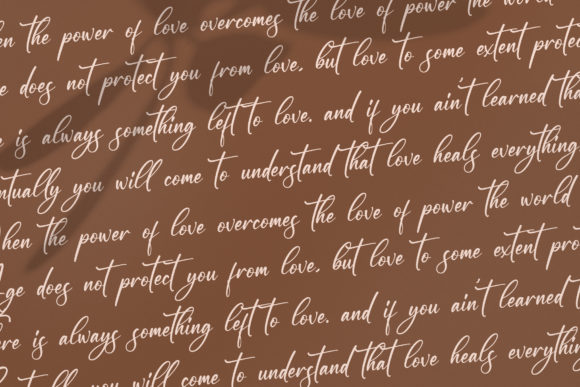 en the power of love overcomes the love of power the world
e does not protect you from love. but love to some extent protec
e is always something left to love. and if you ain't learned tha
ntually you will come to understand that love heals everything
hen the power of love overcomes the love of power the world
ge does not protect you from love. but love to some extent pro
ere is always something left to love. and if you ain't learned t
you will come to understand that love heals everything